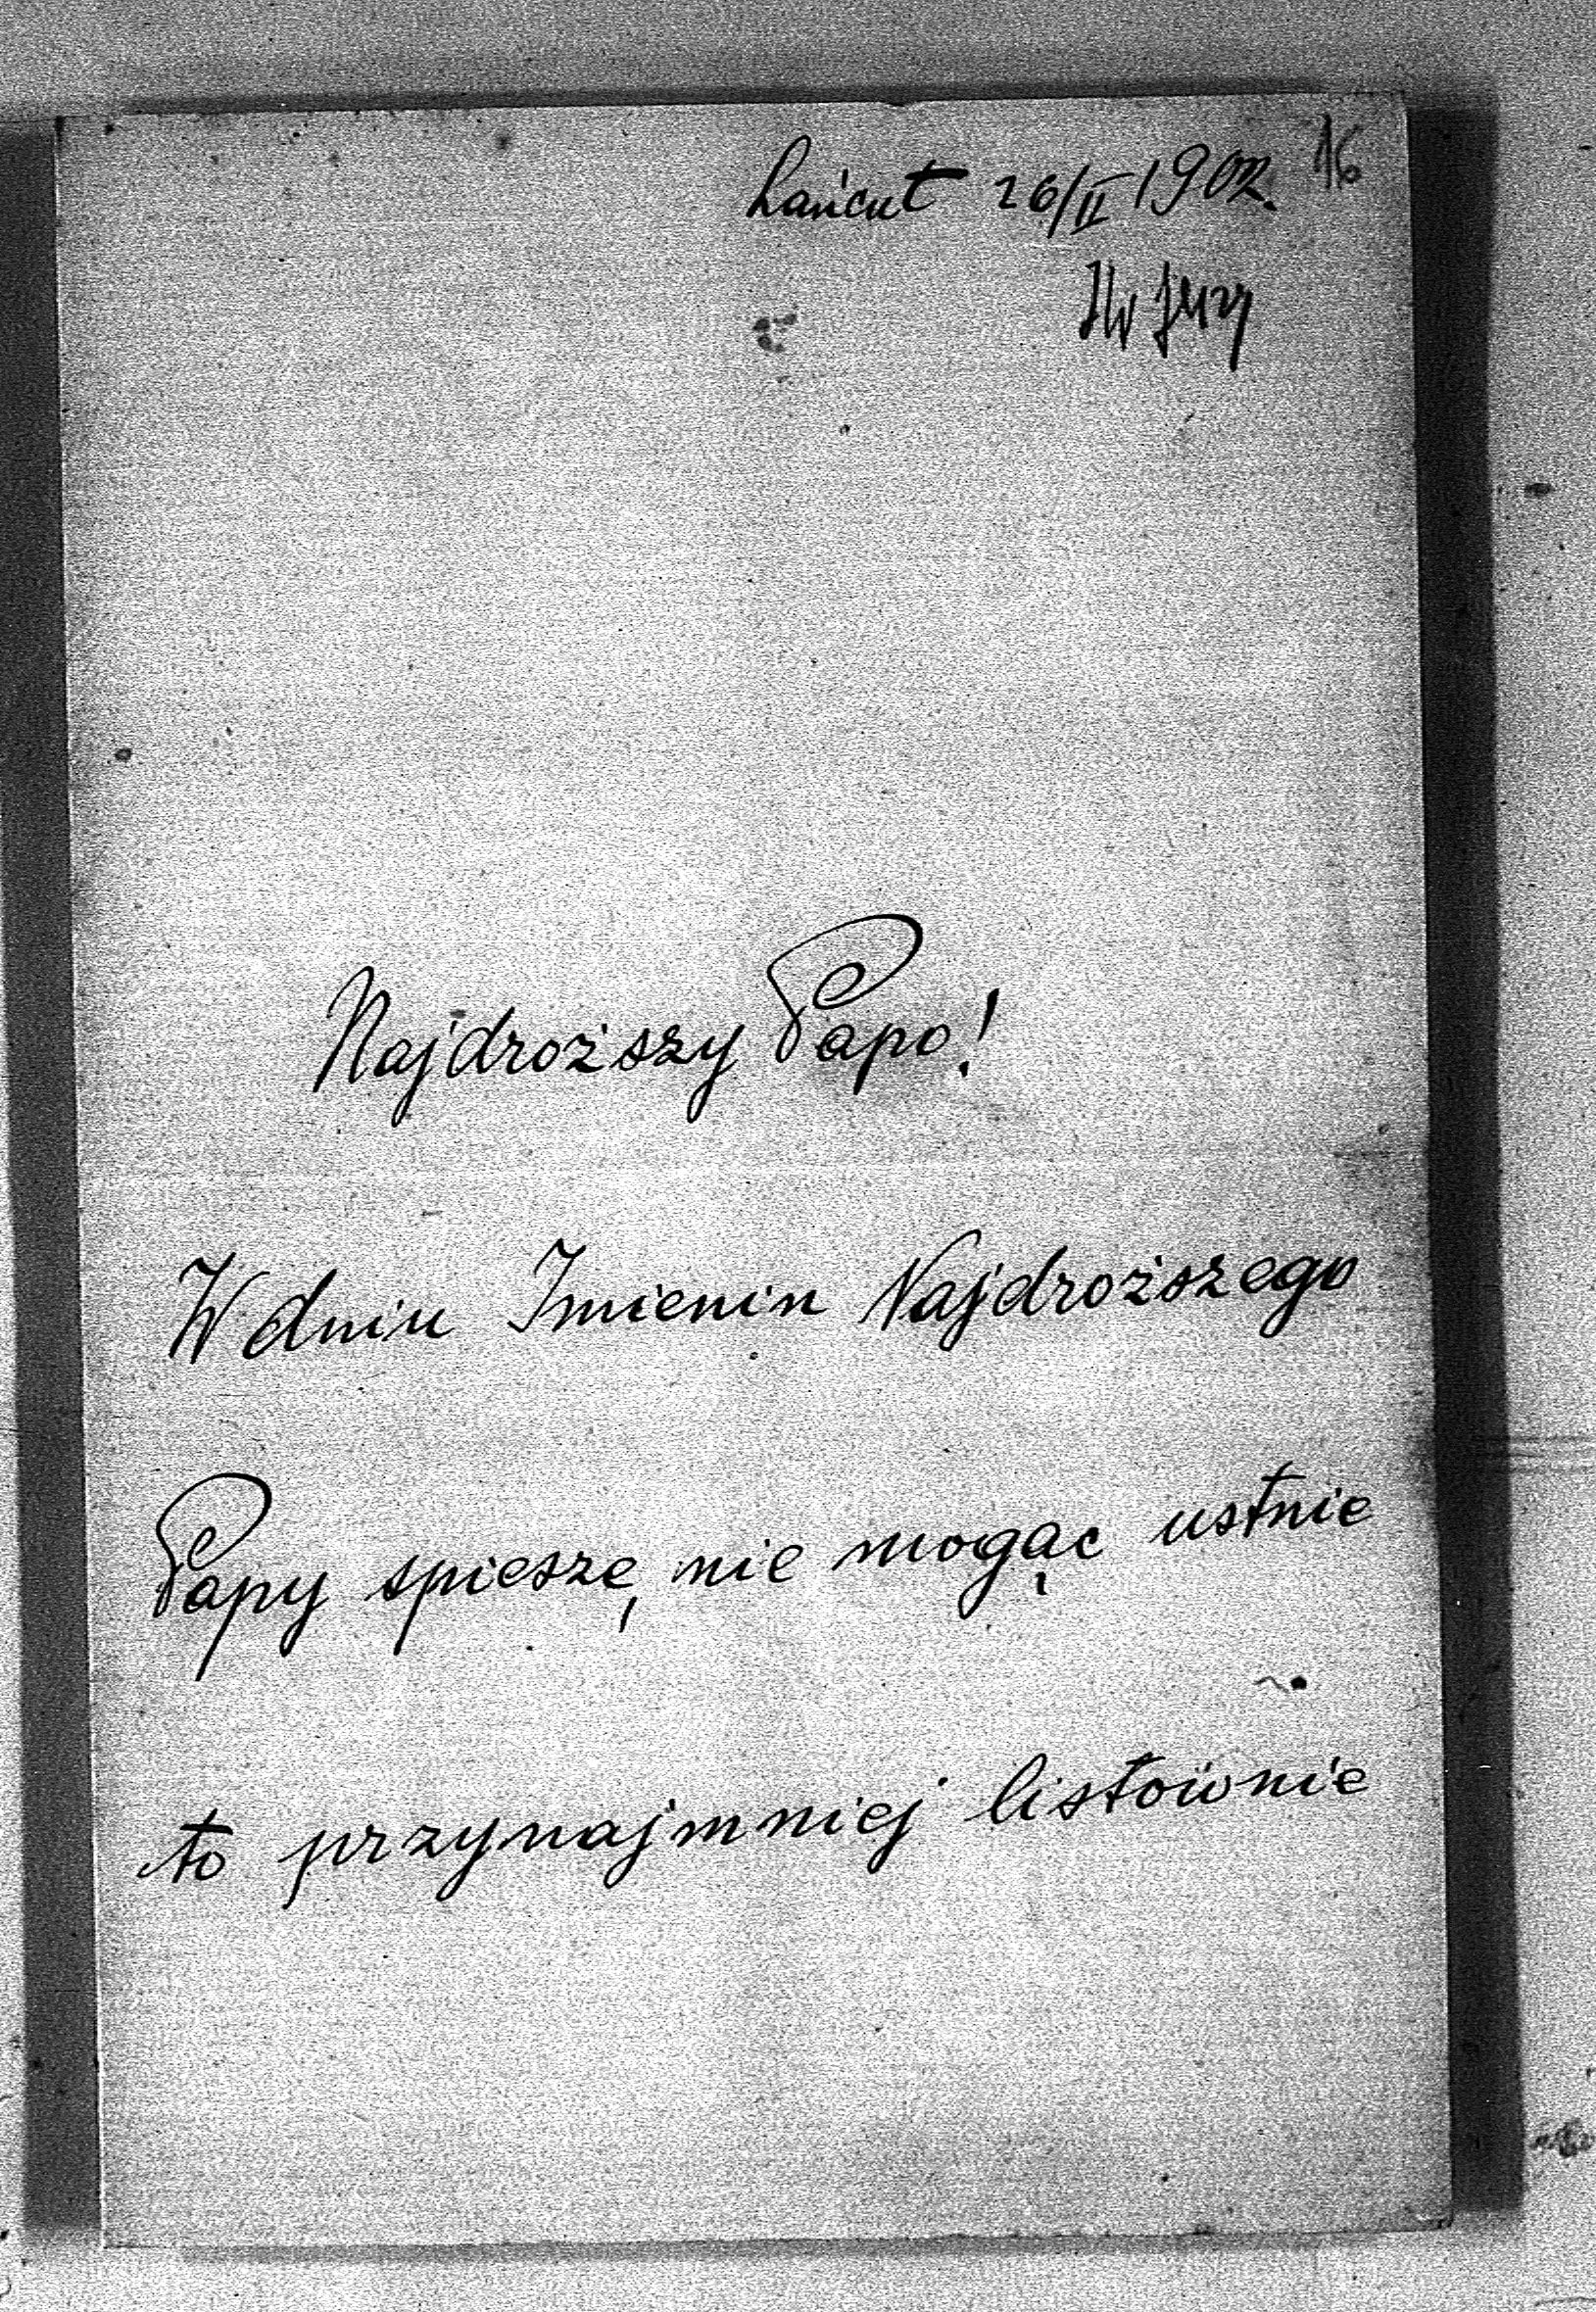 Łańcut 26/II 1902. 16
Jerzy
Najdroższy Papo!
W dniu Imienin Najdroższego
Papy spieszę nie mogąc ustnie
to przynajmniej listownie